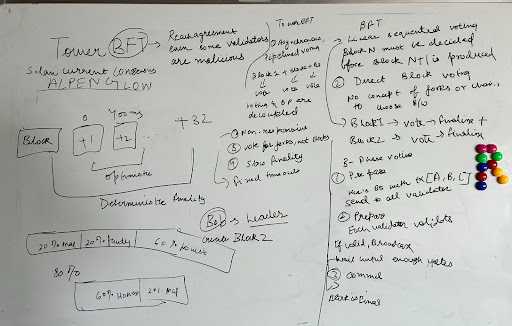 Tower BFT → Reach agreement
even some validators
are malicious
Solan current consensus
ALPENGLOW
0 400ms
Block +1 +2 +32
optimistic
Deterministic finality
Bob → Leader
create Block 2
20% mal 20% faulty 60% honest
80%
60% Honest 20% mal
Tower BFT
① Asynchronous,
Pipelined voting
Block 2
vote vote vote
Voting & BP are
decoupled
② Non-responsive
③ Vote for forks, not blocks
④ Slow finality
fixed timeouts
BFT
① Linear sequential voting
Block N must be decided
before Block N+1 is produced
② Direct Block voting
No concept of forks or chain,
to choose b/w
Block 1 → vote → finalize +
Block 2 → vote → finalize
3-Phase voting
① Pre pare
Here's B5 with tx [A, B, C]
send to all validator
② Prepare
Each validator validates
If valid, Broadcast
wait until enough votes
③ commit
Block is final